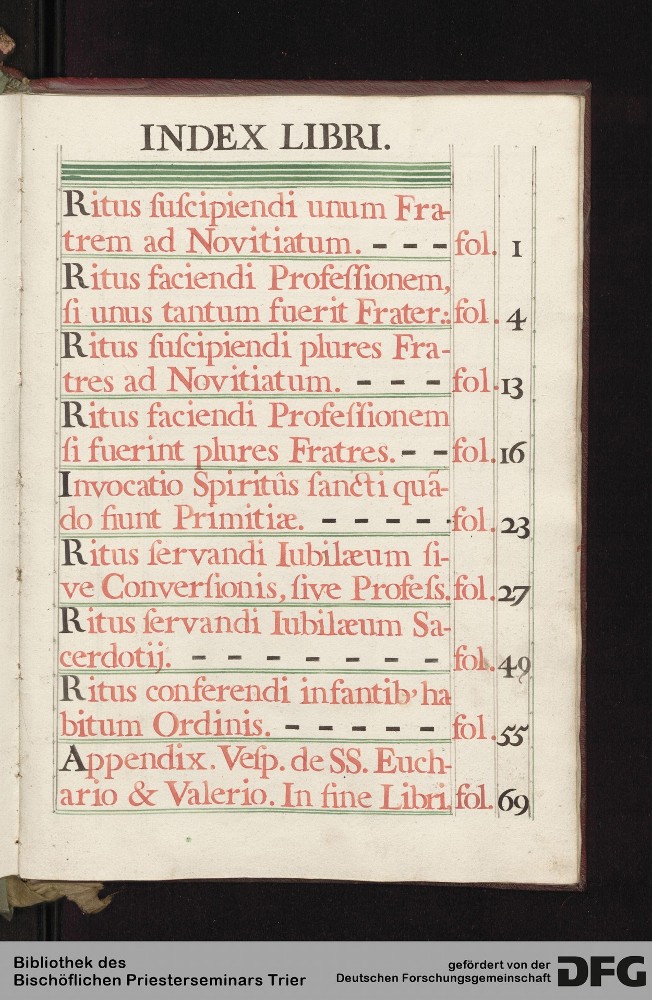 INDEX LIBRI.
Ritus ſuſcipiendi unum Fra-
trem ad Novitiatum. - - - fol. 1
Ritus faciendi Profeſſionem,
ſi unus tantum fuerit Frater.: fol. 4
Ritus ſuſcipiendi plures Fra-
tres ad Novitiatum. - - - fol. 13
Ritus faciendi Profeſſionem
ſi fuerint plures Fratres. - - fol. 16
Invocatio Spiritûs ſancti quã-
do fiunt Primitiæ. - - - - - fol. 23
Ritus ſervandi Iubilæum ſi-
ve Converſionis, ſive Profeſs. fol. 27
Ritus ſervandi Iubilæum Sa-
cerdotij. - - - - - - - fol. 49
Ritus conferendi infantib' ha
bitum Ordinis. - - - - - fol. 55
Appendix. Veſp. de SS. Euch-
ario & Valerio. In fine Libri, fol. 69
Bibliothek des
Bischöflichen Priesterseminars Trier
gefördert von der
Deutschen Forschungsgemeinschaft
DFG